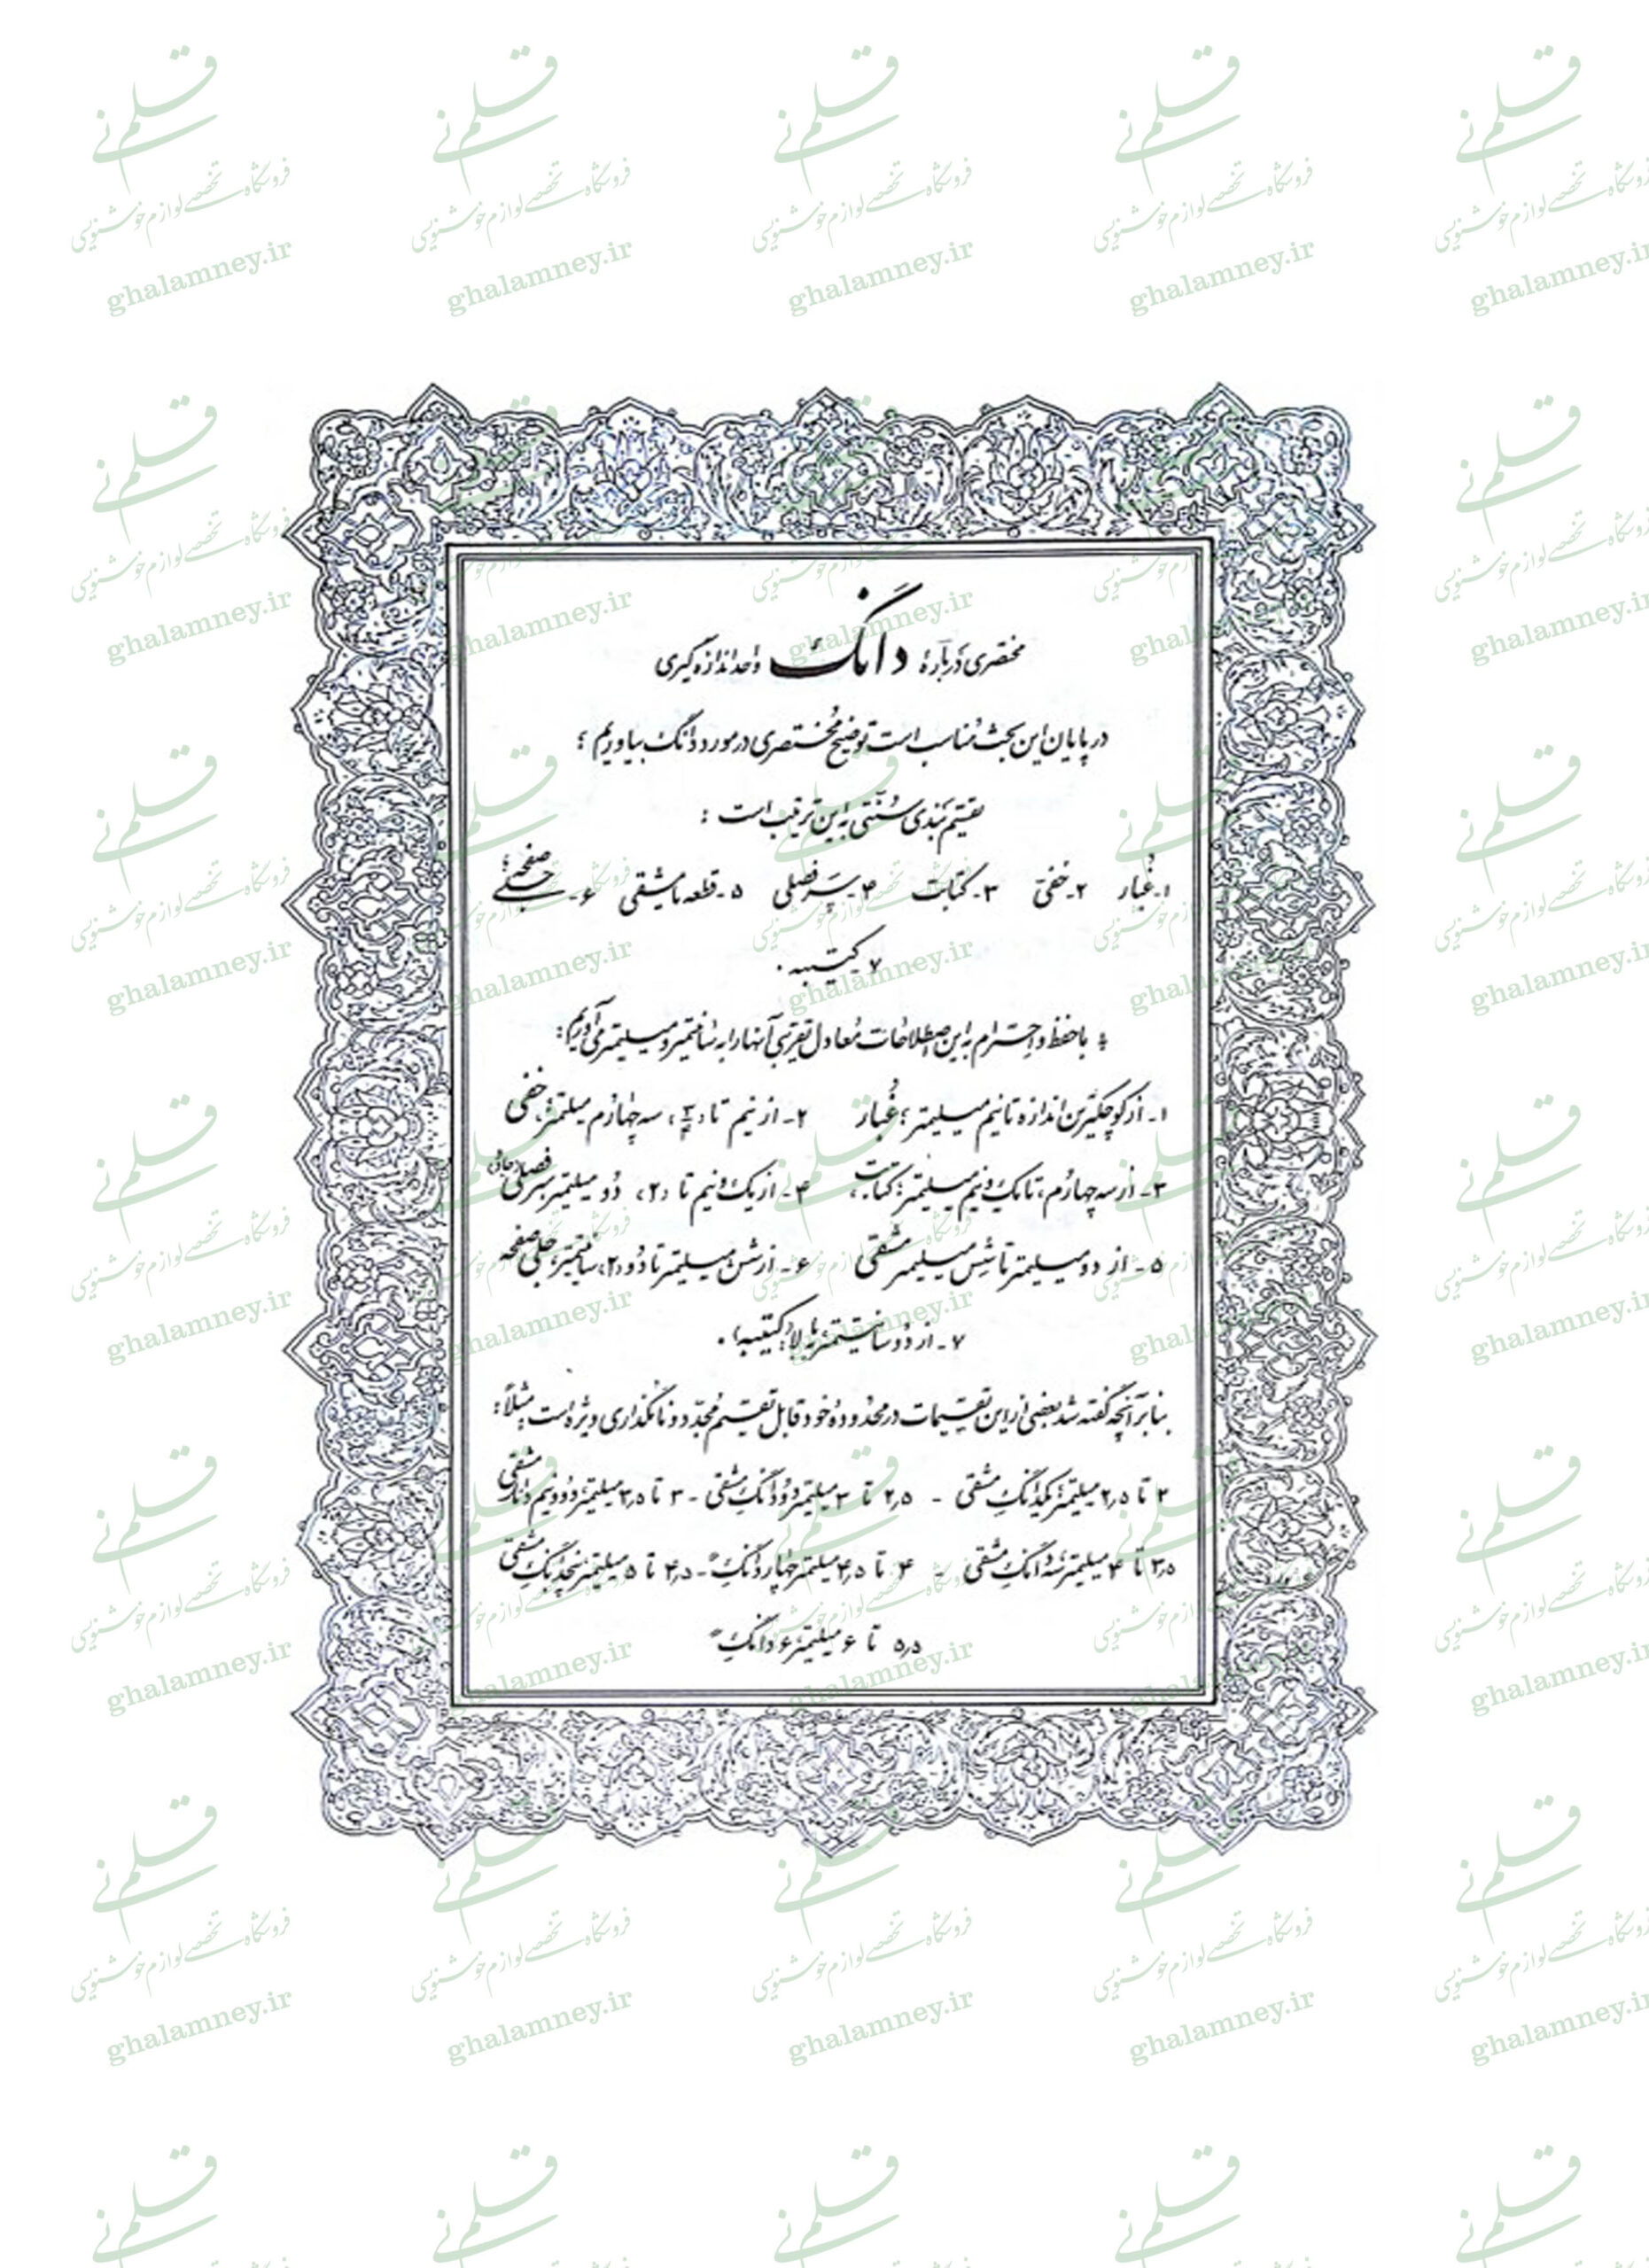 مختصری دربارهٔ دانگ واحد اندازه‌گیری
در پایان این بحث مناسب است توضیح مختصری در مورد دانگ بیاوریم ؛
تقسیم‌بندی سُنّتی به این ترتیب است :
۱- غُبار ۲- خفیّ ۳- کتابت ۴- سَرفصلی ۵- قطعه یا مشقی ۶- جلی صفحه؛
۷ کتیبه .
با حفظ و احترام به این اصطلاحات مُعادل تقریبی آنها را به سانتیمتر و میلیمتر می‌آوریم :
۱- از کوچکترین اندازه تا نیم میلیمتر ؛ غُبار ۲- از نیم تا ۳/۴ ، سه چهارم میلیمتر ؛ خفی
۳- از سه چهارم ، تا یک و نیم میلیمتر ؛ کتابت ، ۴- از یک و نیم تا (۲) دو میلیمتر سرفصلی
۵- از دو میلیمتر تا شش میلیمتر مشقی ۶- از شش میلیمتر تا دو (۲) سانتیمتر ، جلی صفحه
۷- از دو سانتیمتر به بالا ؛ (کتیبه) .
بنابر آنچه گفته شد بعضی از این تقسیمات در محدوده خود قابل تقسیم مُجدّد و نامگذاری ویژه است مثلاً :
۲ تا ۲٫۵ میلیمتر ؛ یکدانگ مشقی - ۲٫۵ تا ۳ میلیمتر دودانگ مشقی - ۳ تا ۳٫۵ میلیمتر دو و نیم دانگ مشقی
۳٫۵ تا ۴ میلیمتر سه دانگ مشقی - ۴ تا ۴٫۵ میلیمتر چهاردانگ " - ۴٫۵ تا ۵ میلیمتر پنجدانگ مشقی
۵٫۵ تا ۶ میلیمتر ۶ دانگ "
قلم نی
فروشگاه تخصصی لوازم خوشنویسی
ghalamney.ir